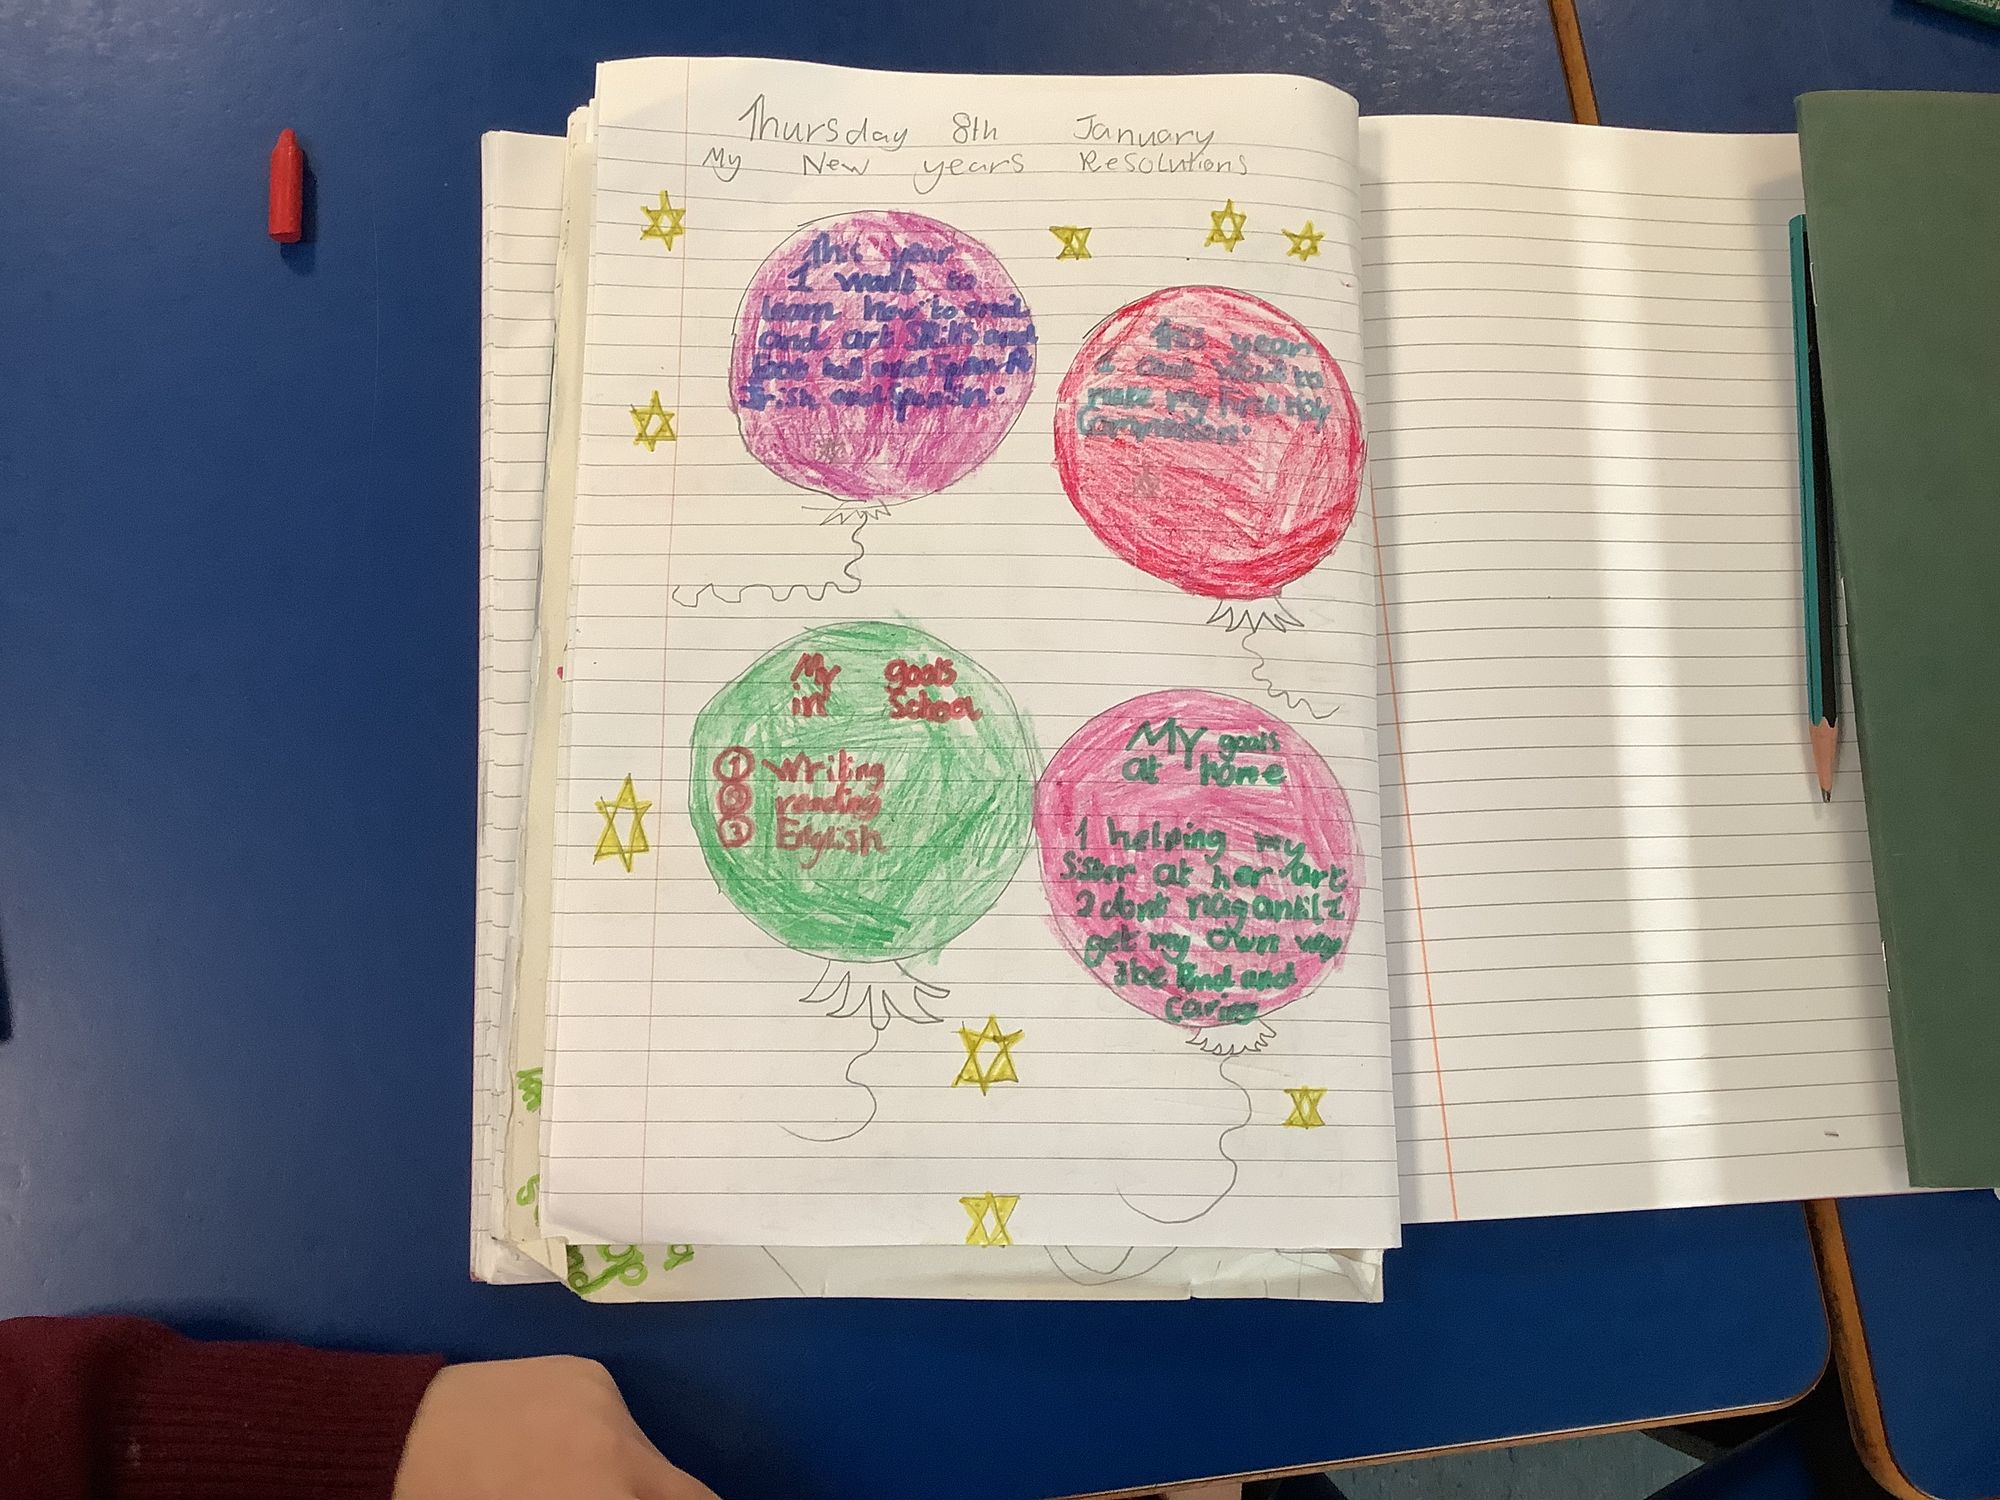 Thursday 8th January
My New years Resolutions
This year
I want to
learn how to
and art skills and
foot ball and
Irish and
this year
I want to
make my first Holy
Communion.
My goals
in School
1 writing
2 reading
3 English
My goals
at home
1 helping my
Sister at her art
2 dont nag antil I
get my own way
3 be kind and
caring